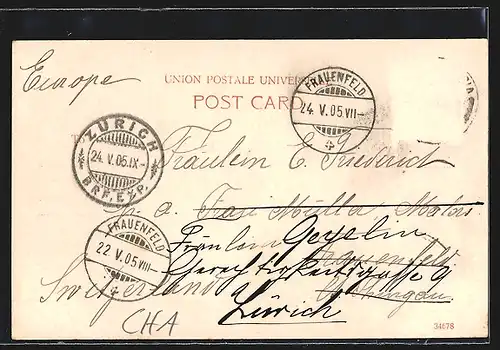 Europe
UNION POSTALE UNIVER
POST CARD
FRAUENFELD
24. V. 05. VII-
4
ZÜRICH
24. V. 05. IX-
BRF. EXP.
Fräulein C. Friederich
p. a. Frau Müller
FRAUENFELD
22. V. 05 VIII-
4
Fräulein
Gerechtigkeitsgasse 9
Switzerland
Zürich
CHA
34678